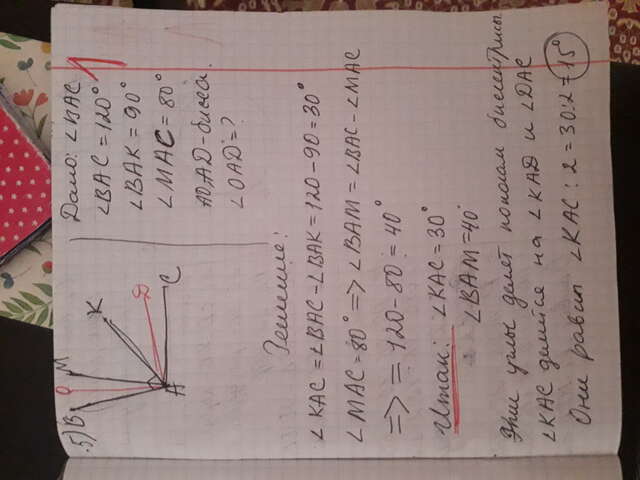 5)
B O M
K
D
A C
Дано: ∠BAC
∠BAC = 120°
∠BAK = 90°
∠MAC = 80°
AO, AD - биссек.
∠OAD = ?
Решение:
∠KAC = ∠BAC - ∠BAK = 120 - 90 = 30°
∠MAC = 80° => ∠BAM = ∠BAC - ∠MAC
=> = 120 - 80 = 40°
Итак: ∠KAC = 30°
∠BAM = 40°
Эти углы делят попалам биссектрисы
∠KAC делится на ∠KAD и ∠DAC
Они равны ∠KAC : 2 = 30 : 2 = 15°